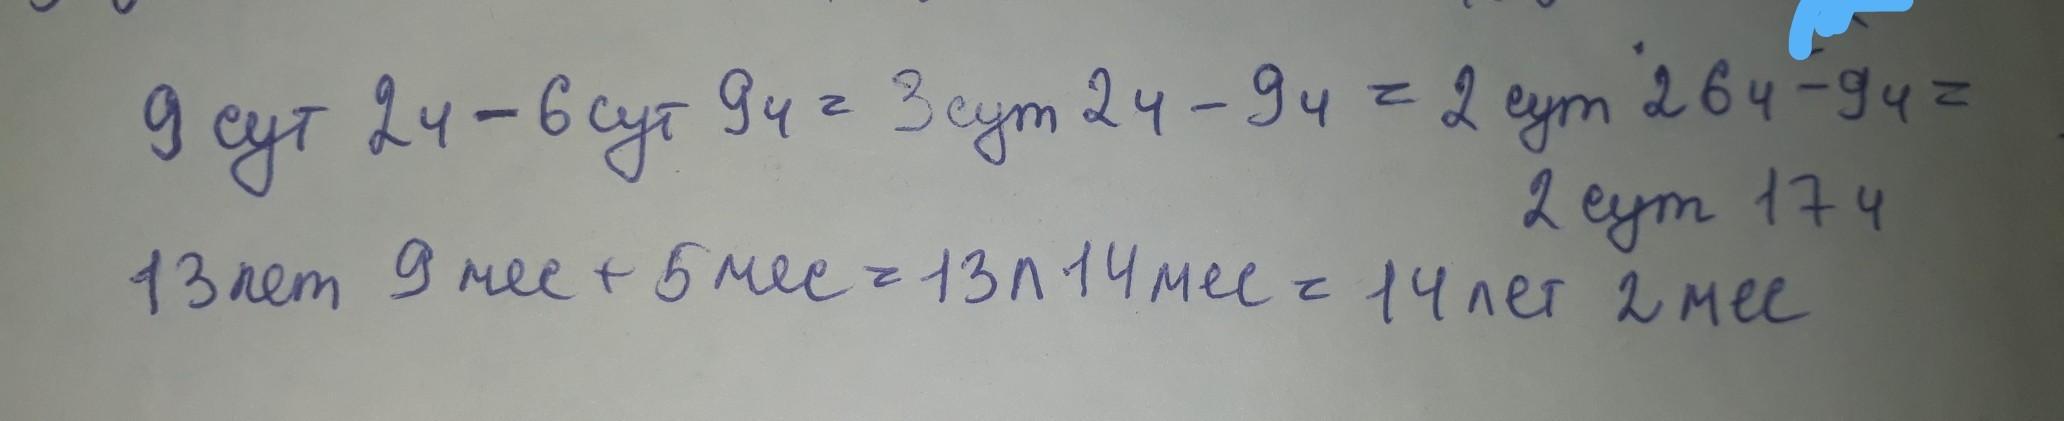 9 сут 2ч - 6 сут 9ч = 3 сут 2ч - 9ч = 2 сут 26ч - 9ч =
2 сут 17ч
13 лет 9 мес + 5 мес = 13 л 14 мес = 14 лет 2 мес